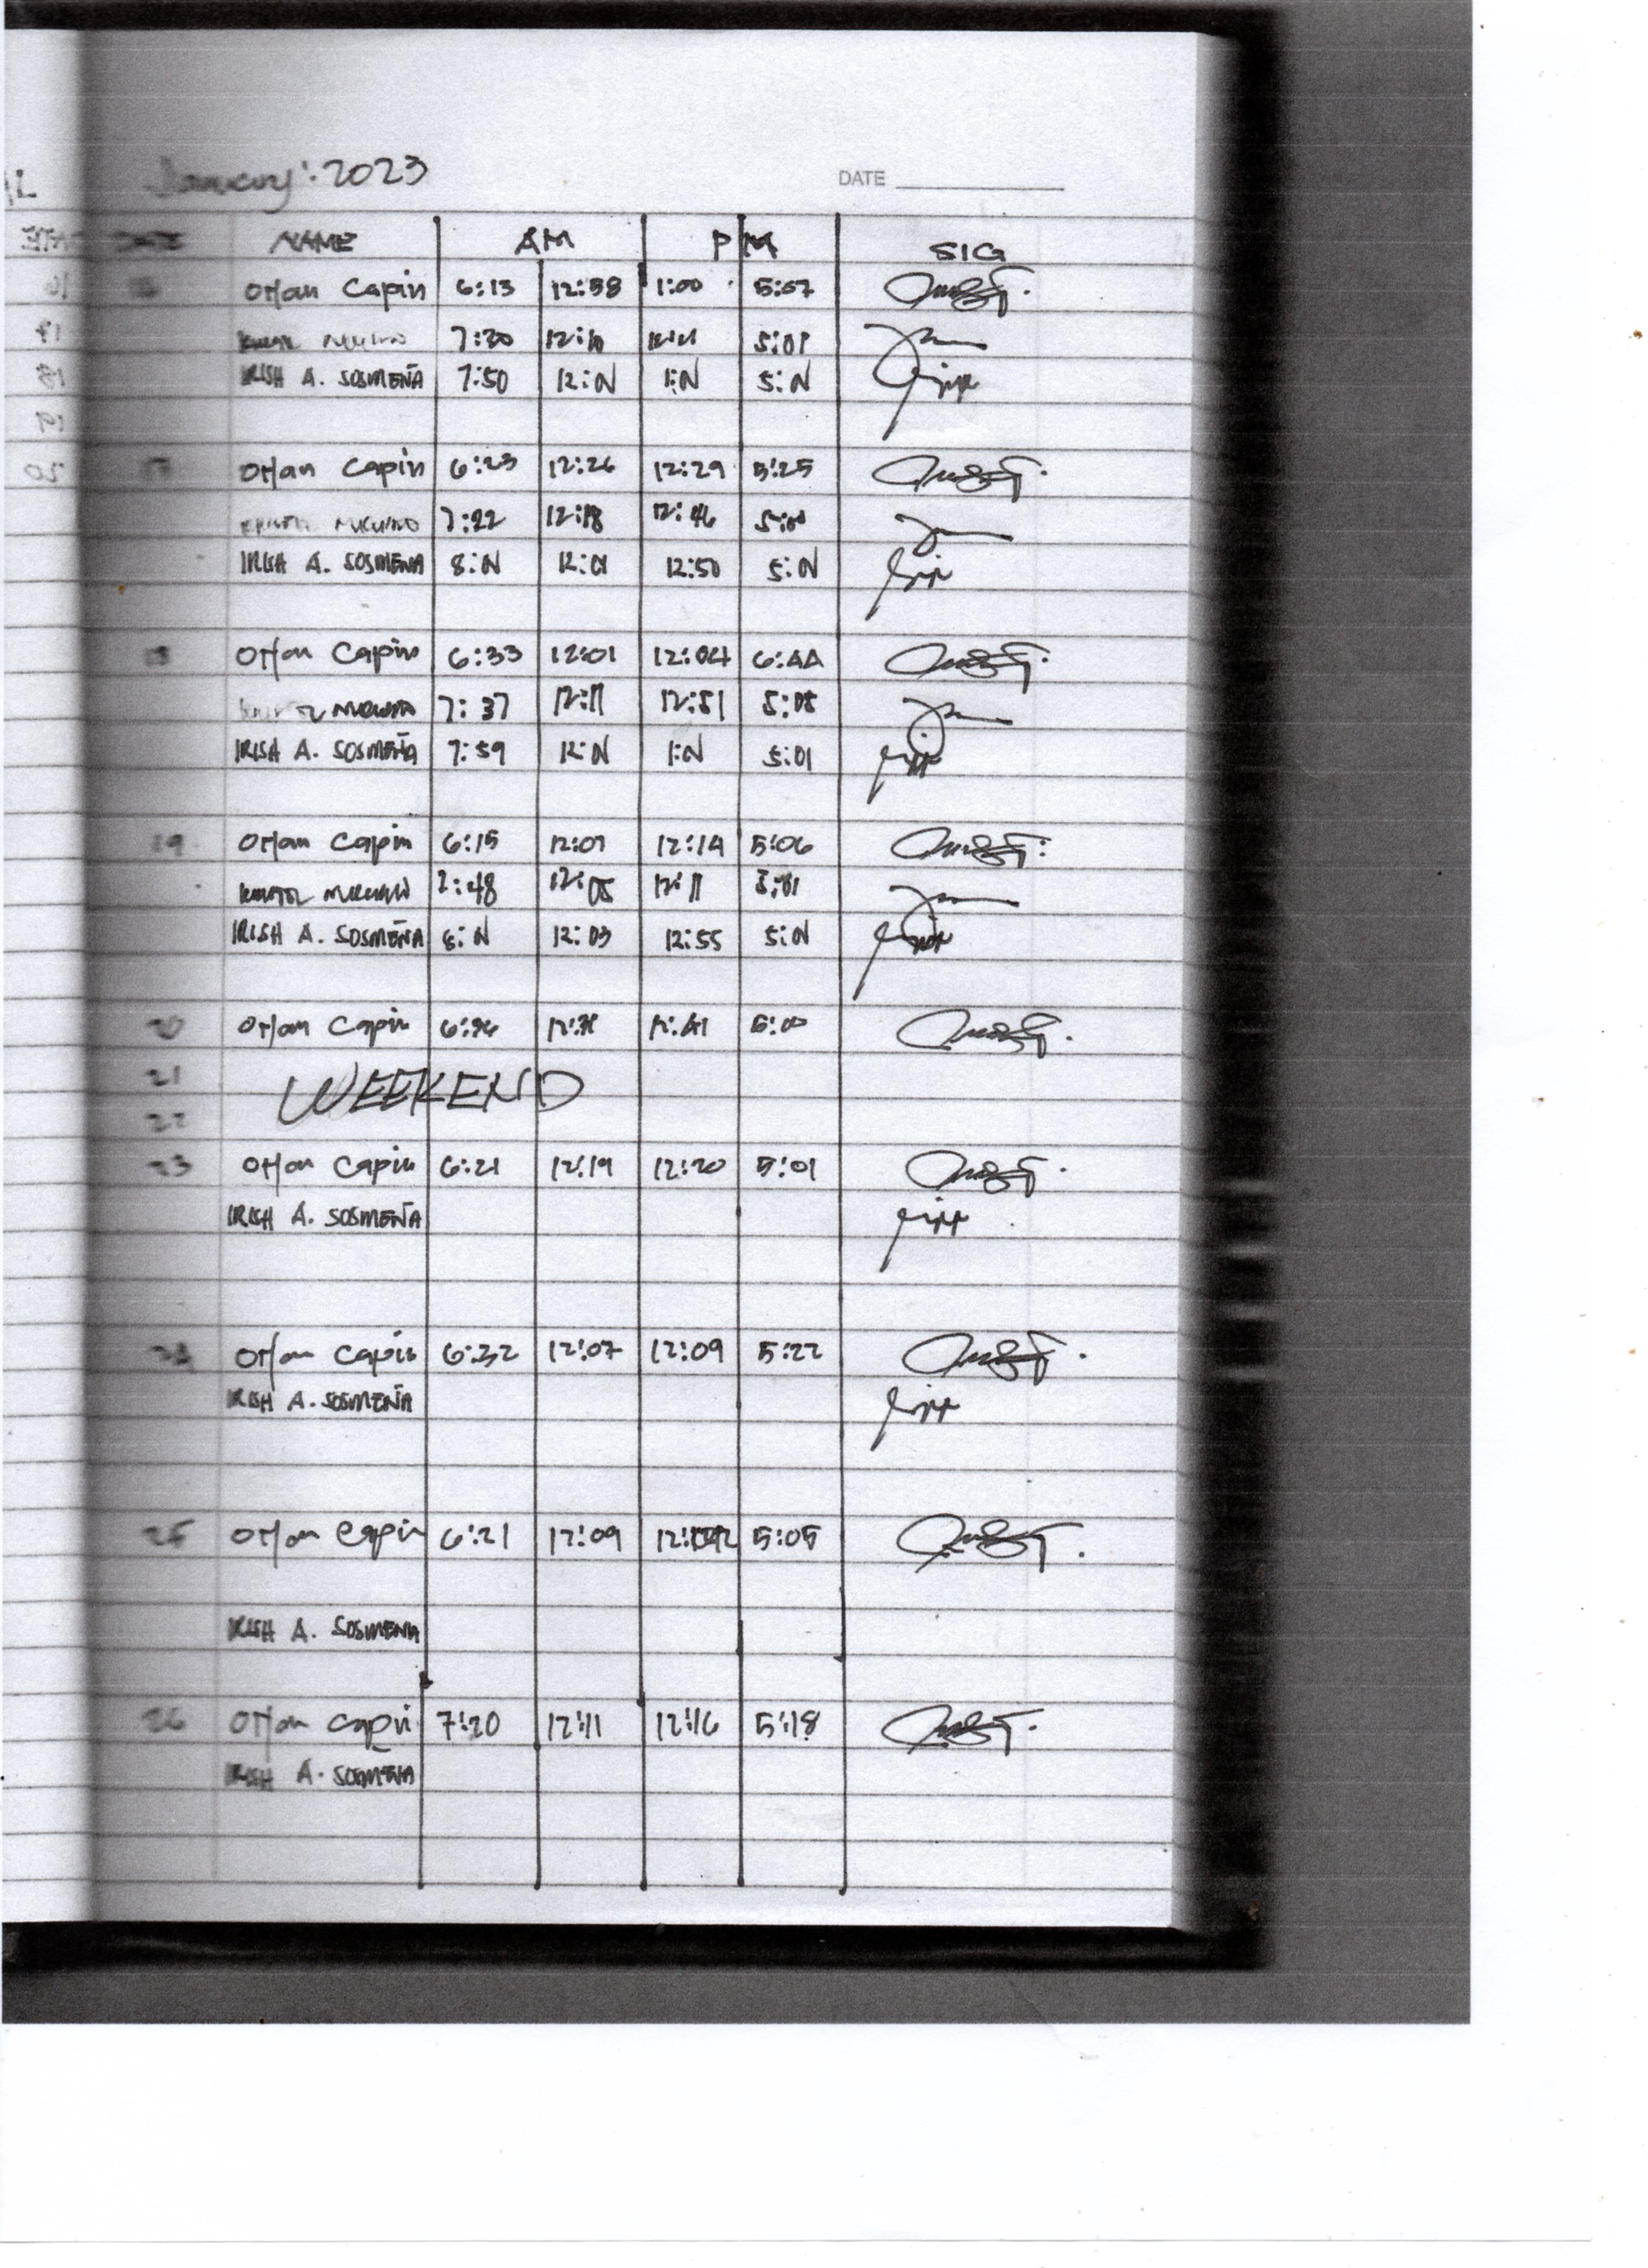 January: 2023
DATE
DATE NAME AM PM SIG
16 Orlan Capin 6:13 12:58 1:00 5:07
7:20 5:01
IRISH A. SOSMEÑA 7:50 12:N 1:N 5:N
17 Orlan Capin 6:23 12:26 12:29 5:25
7:22 12:18 12:46
IRISH A. SOSMEÑA 8:N 12:01 12:50 5:N
18 Orlan Capin 6:33 12:01 12:04 6:44
7:37 12:11 12:51 5:05
IRISH A. SOSMEÑA 7:59 12:N 1:N 5:01
19 Orlan Capin 6:15 12:07 12:14 5:06
7:48 12:05 12:11 5:01
IRISH A. SOSMEÑA 8:N 12:03 12:55 5:N
20 Orlan Capin 12:41 5:00
21 WEEKEND
22
23 Orlan Capin 6:21 12:19 12:20 5:01
IRISH A. SOSMEÑA
24 Orlan Capin 6:32 12:07 12:09 5:22
IRISH A. SOSMEÑA
25 Orlan Capin 6:21 12:09 5:05
IRISH A. SOSMEÑA
26 Orlan Capin 7:20 12:11 12:16 5:18
IRISH A. SOSMEÑA